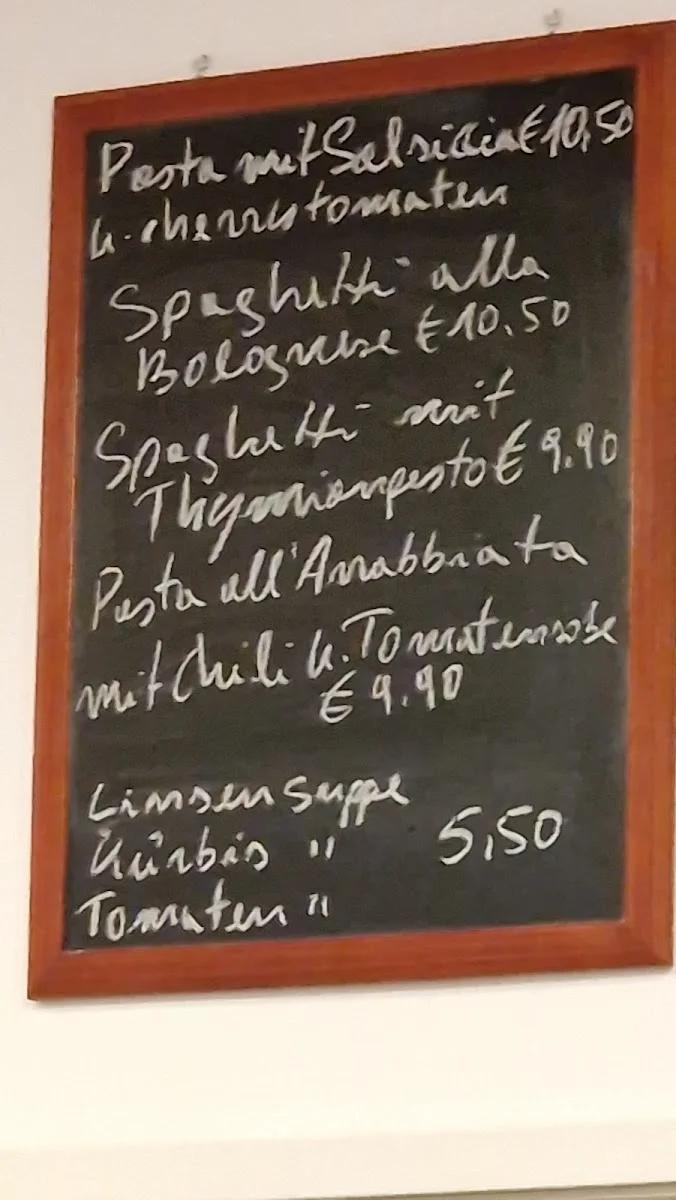 Pasta mit Salsiccia € 10,50
u. cherrytomaten
Spaghetti alla
Bolognese € 10.50
Spaghetti mit
Thymianpesto € 9.90
Pasta all'Arrabbiata
mit Chili u. Tomatensoße
€ 9.90
Linsensuppe
Kürbis "
5,50
Tomaten "